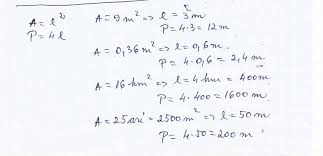 A = l²
P = 4l
A = 9m² => l = 3m
P = 4·3 = 12m
A = 0,36m² => l = 0,6m.
P = 4·0,6 = 2,4m
A = 16hm² => l = 4hm = 400m
P = 4·400 = 1600m
A = 25ari = 2500m² => l = 50m
P = 4·50 = 200m